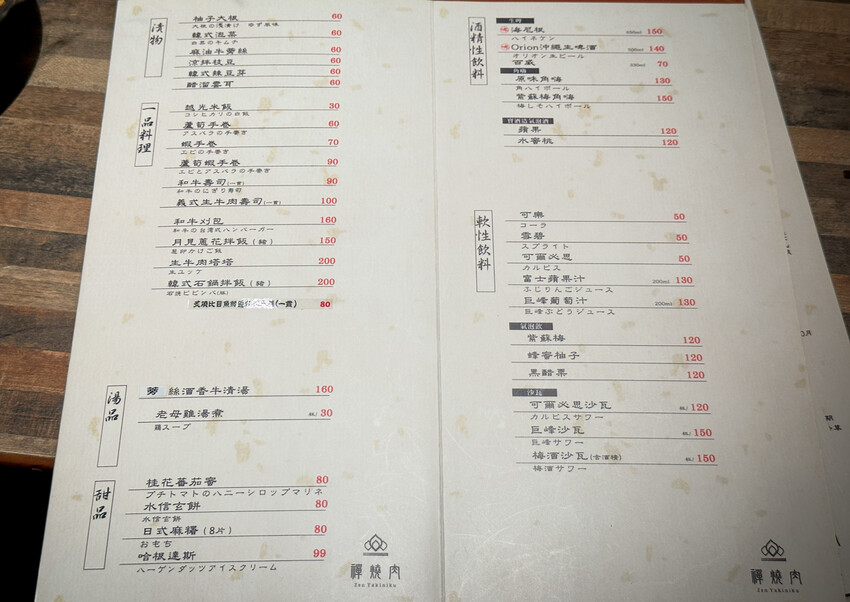 漬物
柚子大根 60
大根の浅漬け ゆず風味
韓式泡菜 60
白菜のキムチ
麻油牛蒡絲 60
涼拌枝豆 60
韓式辣豆芽 60
醋溜雲耳 60
一品料理
越光米飯 30
コシヒカリの白飯
蘆筍手卷 60
アスパラの手巻き
蝦手卷 70
エビの手巻き
蘆筍蝦手卷 90
エビとアスパラの手巻き
和牛壽司(一貫) 90
和牛のにぎり寿司
義式生牛肉壽司(一貫) 100
和牛刈包 160
和牛の台湾式ハンバーガー
月見蔥花拌飯(豬) 150
生牛肉塔塔 200
生ユッケ
韓式石鍋拌飯(豬) 200
石焼ビビンバ(豚)
炙燒比目魚鰭(一貫) 80
湯品
絲酒香牛清湯 160
老母雞湯煮 杯/30
鶏スープ
甜品
桂花番茄蜜 80
プチトマトのハニーシロップマリネ
水信玄餅 80
水信玄餅
日式麻糬(8片) 80
おもち
哈根達斯 99
ハーゲンダッツアイスクリーム
禪燒肉
Zen Yakiniku
酒精性飲料
生啤
海尼根 150
ハイネケン
Orion沖繩生啤酒 140
オリオンエビール
百威 70
角嗨
原味角嗨 130
角ハイボール
紫蘇梅角嗨 150
梅しそハイボール
蘋果 120
水蜜桃 120
軟性飲料
可樂 50
コーラ
雪碧 50
スプライト
可爾必思 50
カルピス
富士蘋果汁 200ml 130
ふじりんごジュース
巨峰葡萄汁 200ml 130
巨峰ぶどうジュース
氣泡飲
紫蘇梅 120
蜂蜜柚子 120
黑醋栗 120
沙瓦
可爾必思沙瓦 杯/120
カルピスサワー
巨峰沙瓦 杯/150
巨峰サワー
梅酒沙瓦(含酒精) 杯/150
梅酒サワー
禪燒肉
Zen Yakiniku